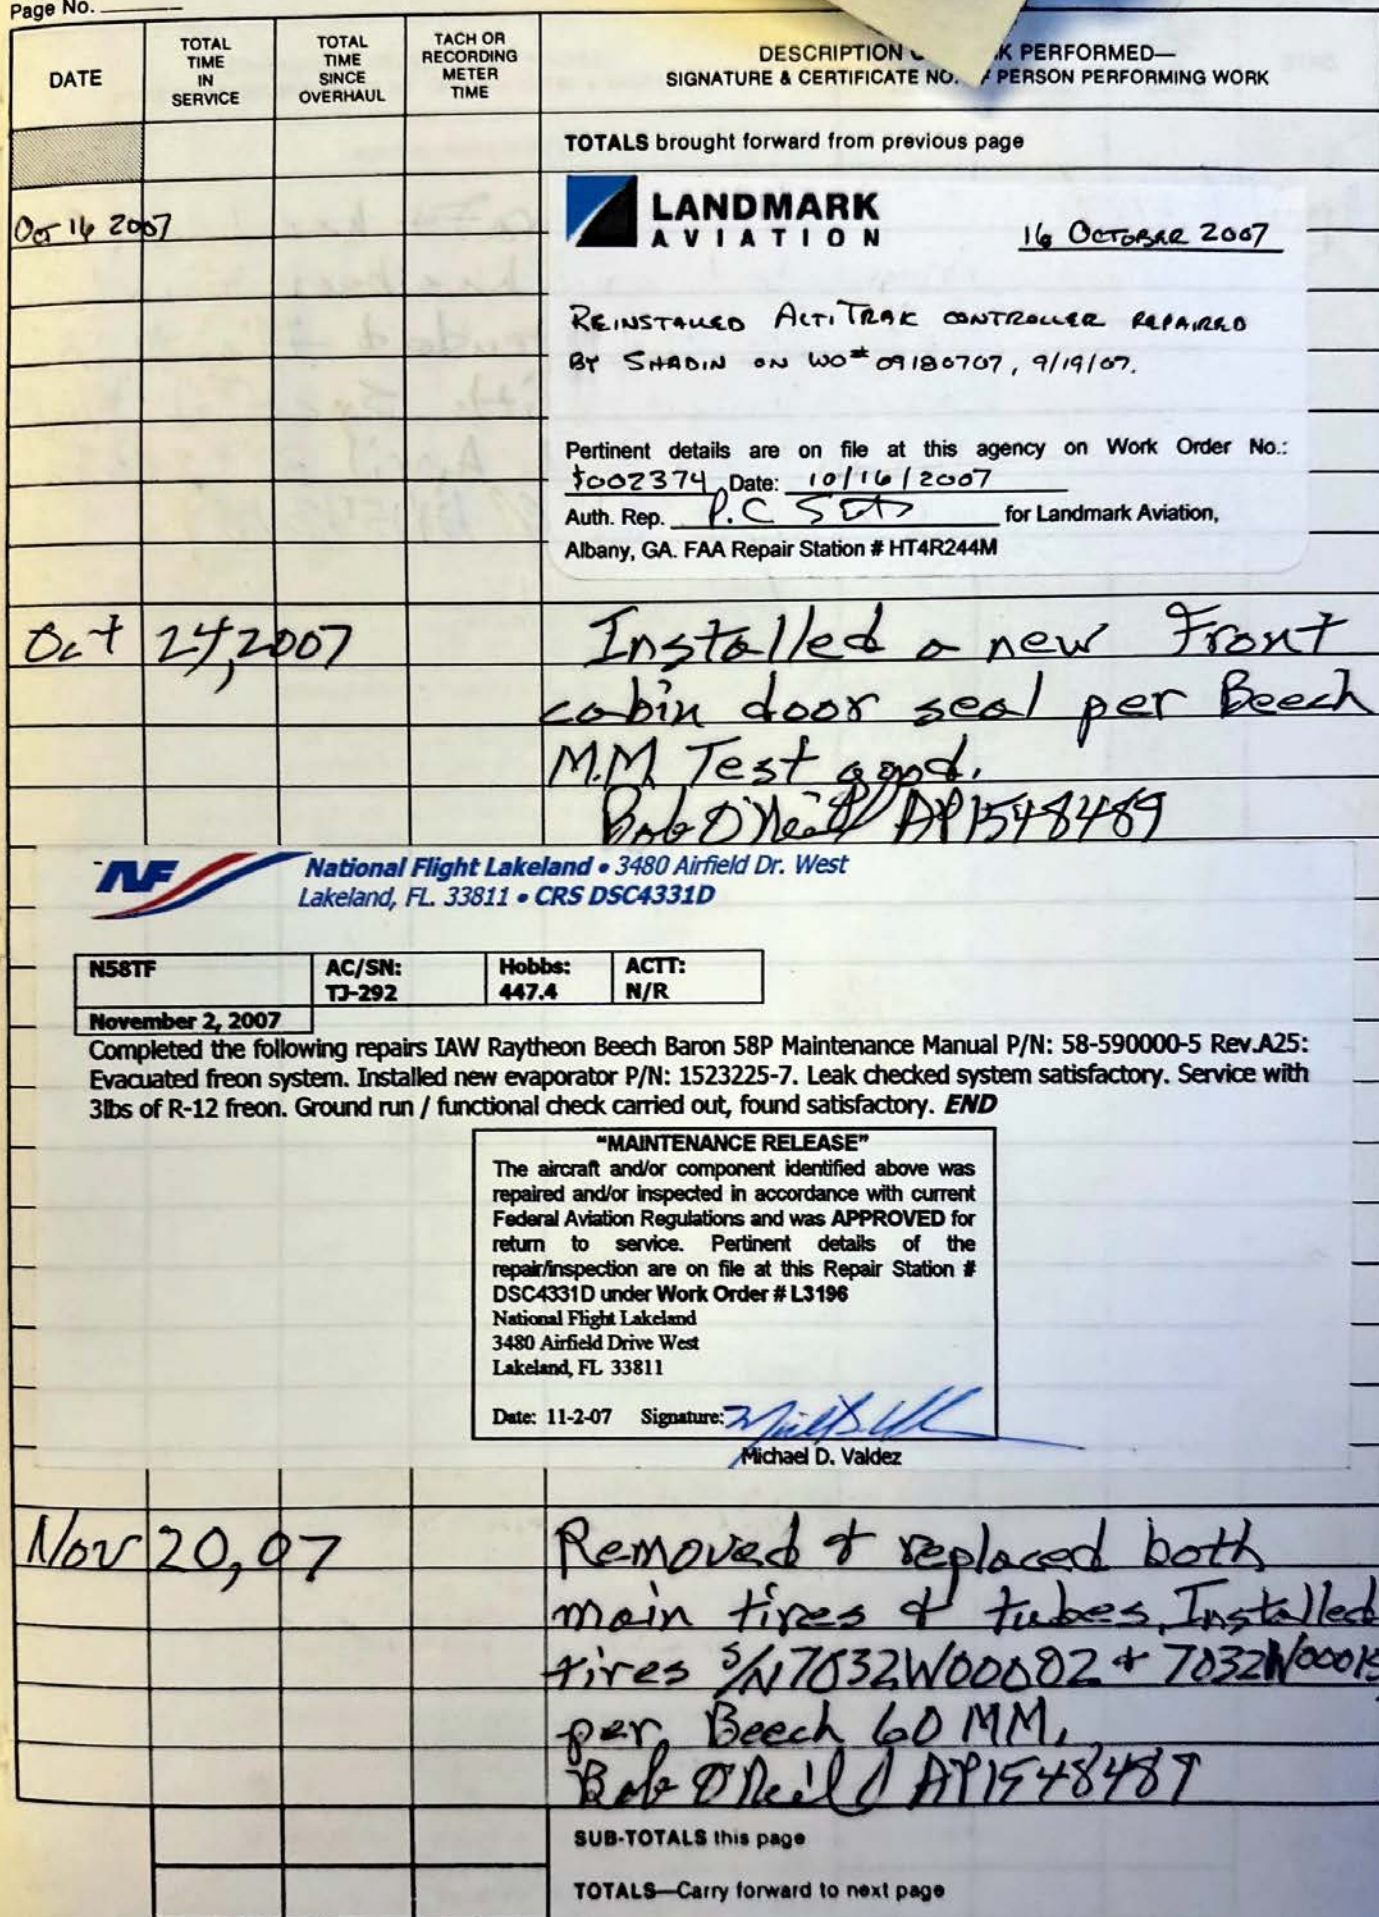 Page No.
DATE
TOTAL
TIME
IN
SERVICE
TOTAL
TIME
SINCE
OVERHAUL
TACH OR
RECORDING
METER
TIME
DESCRIPTION K PERFORMED—
SIGNATURE & CERTIFICATE NO. PERSON PERFORMING WORK
TOTALS brought forward from previous page
Oct 16 2007
LANDMARK
AVIATION
16 OCTOBER 2007
REINSTALLED ALTITRAK CONTROLLER REPAIRED
BY SHADIN ON WO# 09180707, 9/19/07.
Pertinent details are on file at this agency on Work Order No.:
002374 Date: 10/16/2007
Auth. Rep. P.C for Landmark Aviation,
Albany, GA. FAA Repair Station # HT4R244M
Oct 24, 2007 Installed a new Front
cabin door seal per Beech
M.M. Test good.
Bob O'Neill AP1548489
NF
National Flight Lakeland • 3480 Airfield Dr. West
Lakeland, FL. 33811 • CRS DSC4331D
N58TF AC/SN: Hobbs: ACTT:
TJ-292 447.4 N/R
November 2, 2007
Completed the following repairs IAW Raytheon Beech Baron 58P Maintenance Manual P/N: 58-590000-5 Rev.A25:
Evacuated freon system. Installed new evaporator P/N: 1523225-7. Leak checked system satisfactory. Service with
3lbs of R-12 freon. Ground run / functional check carried out, found satisfactory. END
"MAINTENANCE RELEASE"
The aircraft and/or component identified above was
repaired and/or inspected in accordance with current
Federal Aviation Regulations and was APPROVED for
return to service. Pertinent details of the
repair/inspection are on file at this Repair Station #
DSC4331D under Work Order # L3196
National Flight Lakeland
3480 Airfield Drive West
Lakeland, FL 33811
Date: 11-2-07 Signature:
Michael D. Valdez
Nov 20, 07 Removed & replaced both
main tires & tubes. Installed
tires S/N 7032W00002 &
per Beech 60 MM.
Bob O'Neill AP1548489
SUB-TOTALS this page
TOTALS—Carry forward to next page